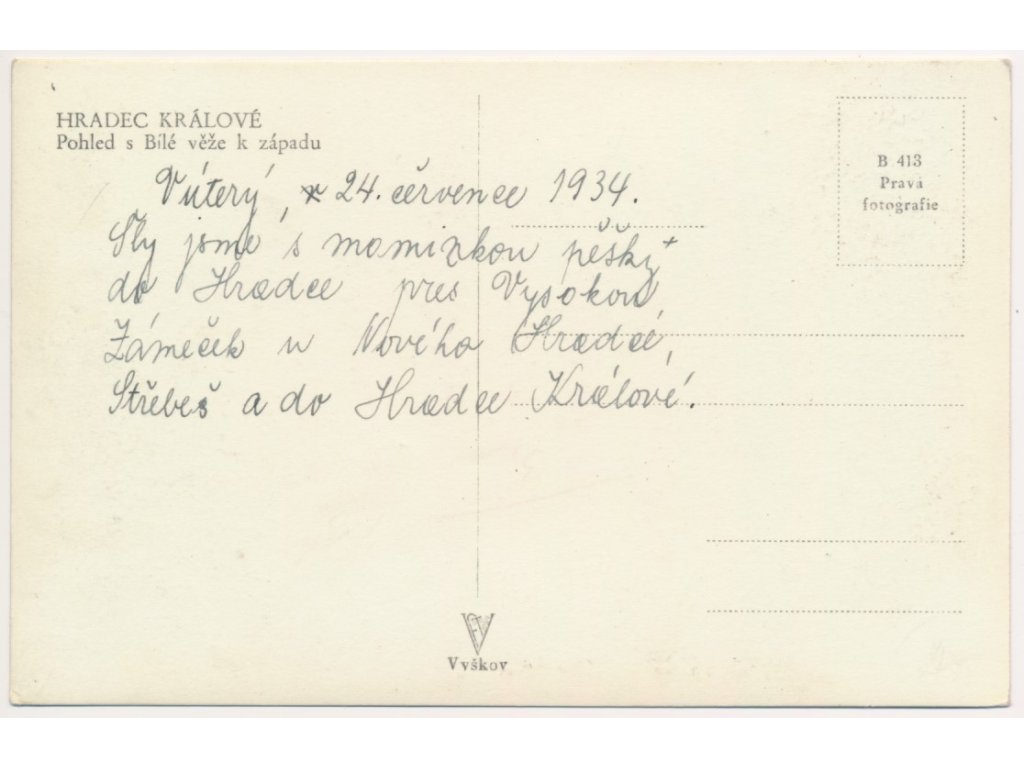 HRADEC KRÁLOVÉ
Pohled s Bílé věže k západu
B 413
Pravá
fotografie
V úterý, 24. července 1934.
Šly jsme s maminkou pěšky
do Hradce přes Vysokou
Zámeček u Nového Hradce,
Střebeš a do Hradce Králové.
FV
Vyškov